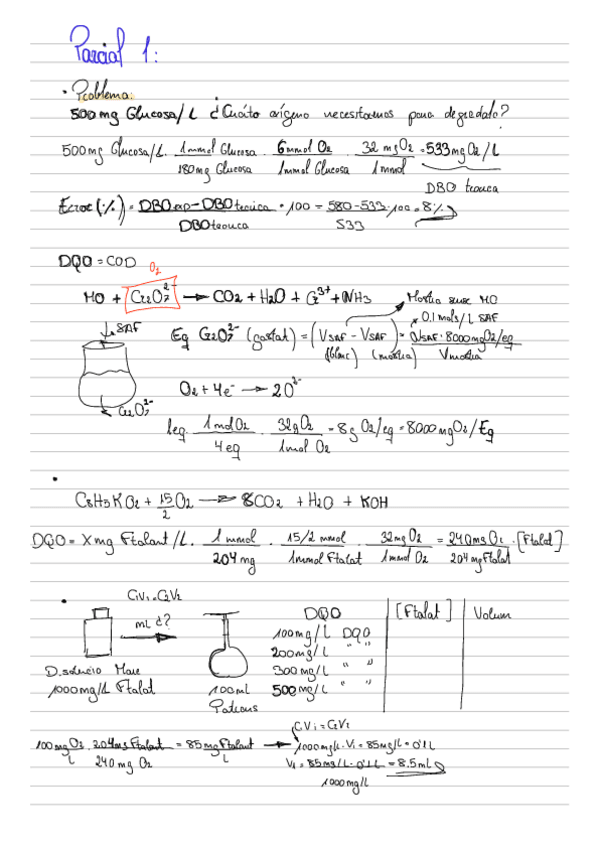 Parcial 1:
• Problema:
500 mg Glucosa/L ¿Cuánto oxígeno necesitamos para degradala?
500 mg Glucosa/L · 1 mmol Glucosa / 180 mg Glucosa · 6 mmol O2 / 1 mmol Glucosa · 32 mg O2 / 1 mmol = 533 mg O2/L
DBO teorica
Error (%) = DBOexp - DBO teorica / DBO teorica · 100 = 580-533 / 533 · 100 = 8%
DQO = COD
O2
MO + Cr2O7^2- → CO2 + H2O + Cr^3+ + NH3
Mostra sense MO
0.1 mols/L SAF
SAF
Eq Cr2O7^2- (gastat) = (VSAF (blanc) - VSAF (mostra)) = VSAF · 8000 mg O2/eq / Vmostra
Cr2O7^2-
O2 + 4e^- → 2O^2-
1eq · 1 mol O2 / 4 eq · 32 g O2 / 1 mol O2 = 8 g O2/eq = 8000 mg O2/Eq
•
C8H5KO2 + 15/2 O2 → 8CO2 + H2O + KOH
DQO = X mg Ftalant/L · 1 mmol / 204 mg · 15/2 mmol / 1 mmol Ftalat · 32 mg O2 / 1 mmol O2 = 240 mg O2 / 204 mg Ftalat · [Ftalat]
• C1V1 = C2V2
mL ¿?
DQO [Ftalat] Volum
100 mg/L DQO
200 mg/L " "
300 mg/L " "
500 mg/L " "
D. solució Mare
1000 mg/L Ftalat
100 ml
Patrons
C1V1 = C2V2
100 mg O2 / L · 204 mg Ftalant / 240 mg O2 = 85 mg Ftalant / L → 1000 mg/L · V1 = 85 mg/L · 0'1 L
V1 = 85 mg/L · 0'1 L / 1000 mg/L = 8.5 mL